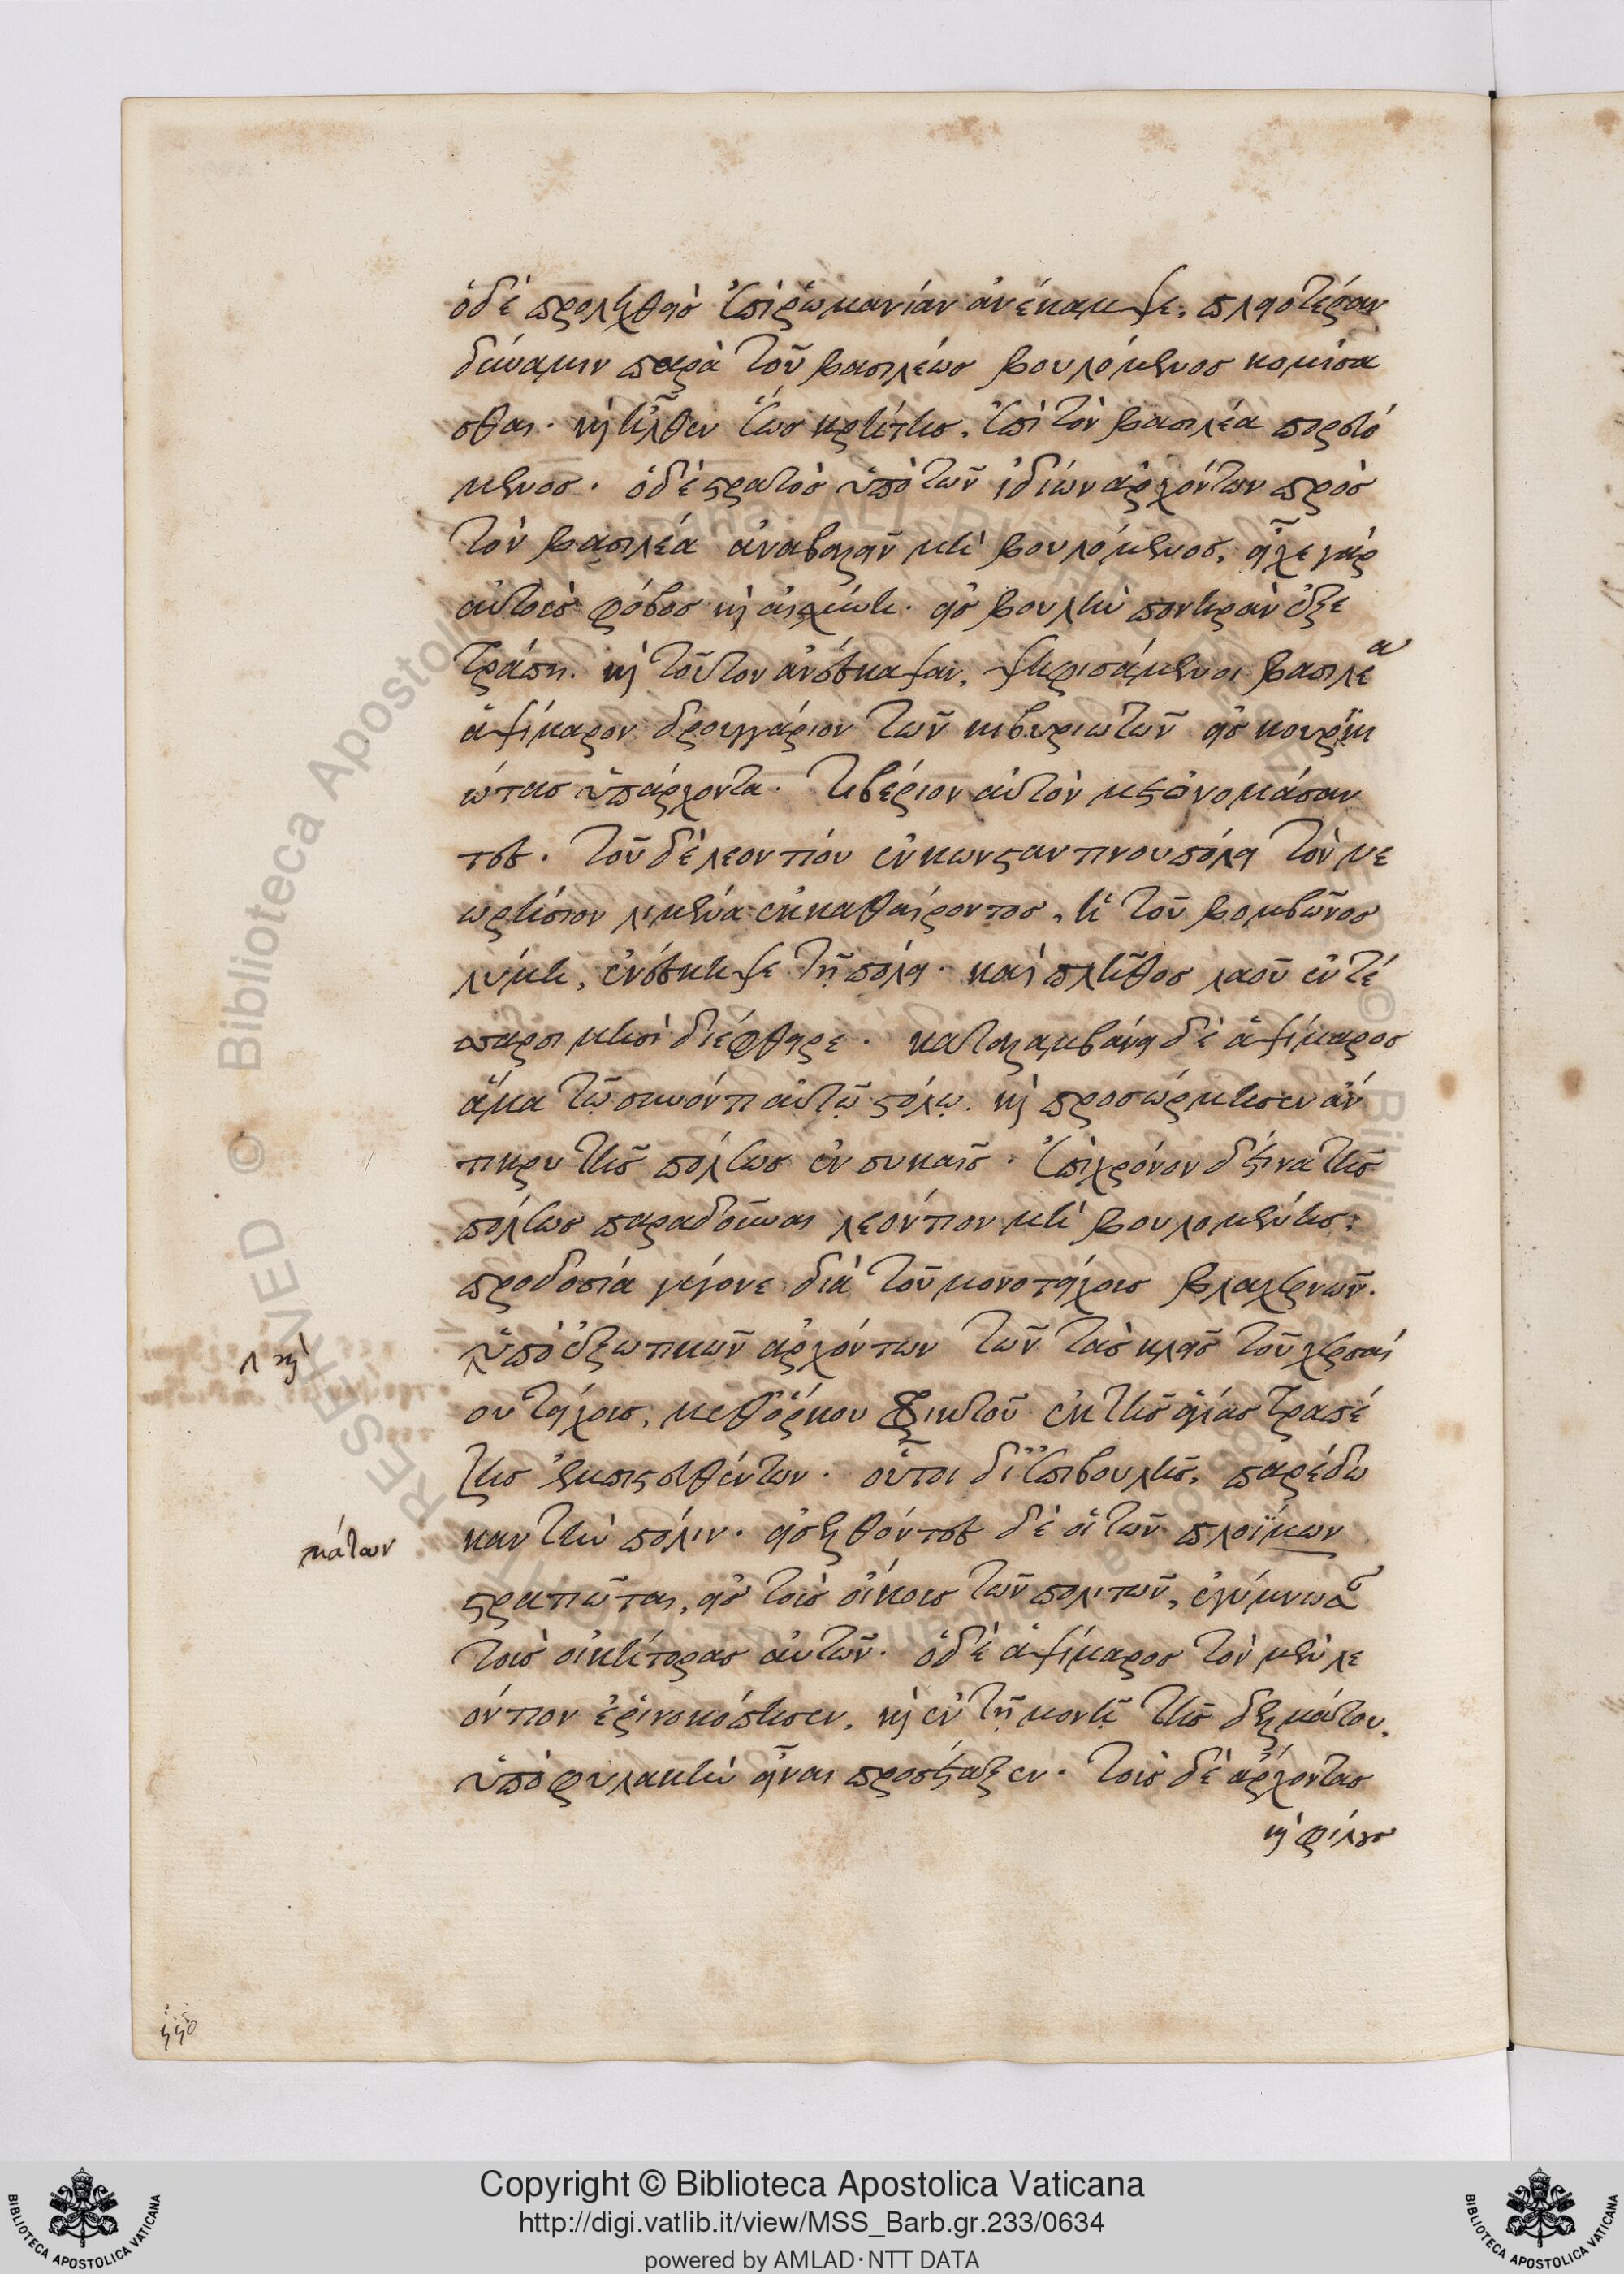 ὁ δὲ προληφθεὶς ἐπὶ ῥωμανίαν ἀνέκαμψε, πλειοτέραν
δύναμιν παρὰ τοῦ βασιλέως βουλόμενος κομίσα
σθαι. καὶ ἦλθεν ἕως κρήτης, ἐπὶ τὸν βασιλέα πορευό
μενος. ὁ δὲ στρατὸς ὑπὸ τῶν ἰδίων ἀρχόντων πρὸς
τὸν βασιλέα ἀναβαλεῖν μὴ βουλόμενος, εἶχε γὰρ
αὐτοὺς φόβος καὶ αἰσχύνη. εἰς βουλὴν πονηρὰν ἐξε
τράπη. καὶ τοῦτον ἀνέσκαψαν, ψηφισάμενοι βασιλέα
ἀψίμαρον δρουγγάριον τῶν κιβυριωτῶν εἰς κουρϊκι
ώτας ὑπάρχοντα. τιβέριον αὐτὸν μετονομάσαν
τες. τοῦ δὲ λεοντίου ἐν κωνσταντινουπόλει τὸν νε
ωρήσιον λιμένα ἐκκαθαίροντος, ἡ τοῦ βουμβῶνος
λύμη, ἐνέσκηψε τῇ πόλει. καὶ πλῆθος λαοῦ ἐν τέ
σαρσι μησὶ διέφθειρε. καταλαμβάνει δὲ ἀψίμαρος
ἅμα τῷ συνόντι αὐτῷ στόλῳ. καὶ προσώρμησεν ἀν
τικρυ τῆς πόλεως ἐν συκαῖς. ἐπὶ χρόνον δέ τινα τῆς
πόλεως παραδοῦναι λεόντιον μὴ βουλομένης.
προδοσία γέγονε διὰ τοῦ μονοτείχους βλαχερνῶν.
ὑπὸ ἐξωτικῶν ἀρχόντων τῶν τὰς κλεῖς τοῦ χερσαί
λ καὶ
ου τείχους, μεθ' ὅρκου φρικτοῦ ἐκ τῆς ἁγίας τραπέ
ζης ἐμπιστευθέντων. οὗτοι δι' ἐπιβουλῆς, παρέδω
καν τὴν πόλιν. εἰσελθόντες δὲ οἱ τῶν πλοΐμων
μάτων
στρατιῶται, εἰς τοὺς οἴκους τῶν πολιτῶν, ἐγύμνωσαν
τοὺς οἰκήτορας αὐτῶν. ὁ δὲ ἀψίμαρος τὸν μὲν λε
όντιον ἐρινοκόπησεν, καὶ ἐν τῇ μονῇ τῆς δελμάτου.
ὑπὸ φυλακὴν εἶναι προσέταξεν. τοὺς δὲ ἄρχοντας
καὶ φίλους
Copyright © Biblioteca Apostolica Vaticana
http://digi.vatlib.it/view/MSS_Barb.gr.233/0634
powered by AMLAD·NTT DATA
BIBLIOTECA APOSTOLICA VATICANA
BIBLIOTECA APOSTOLICA VATICANA